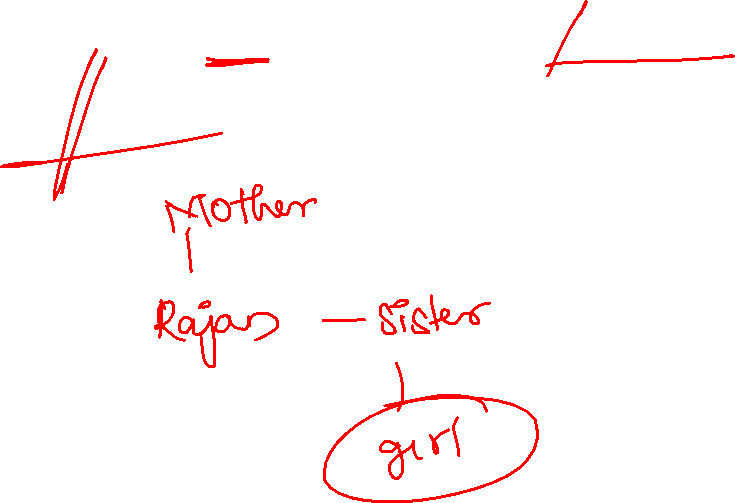 Mother
Rajan - sister
girl